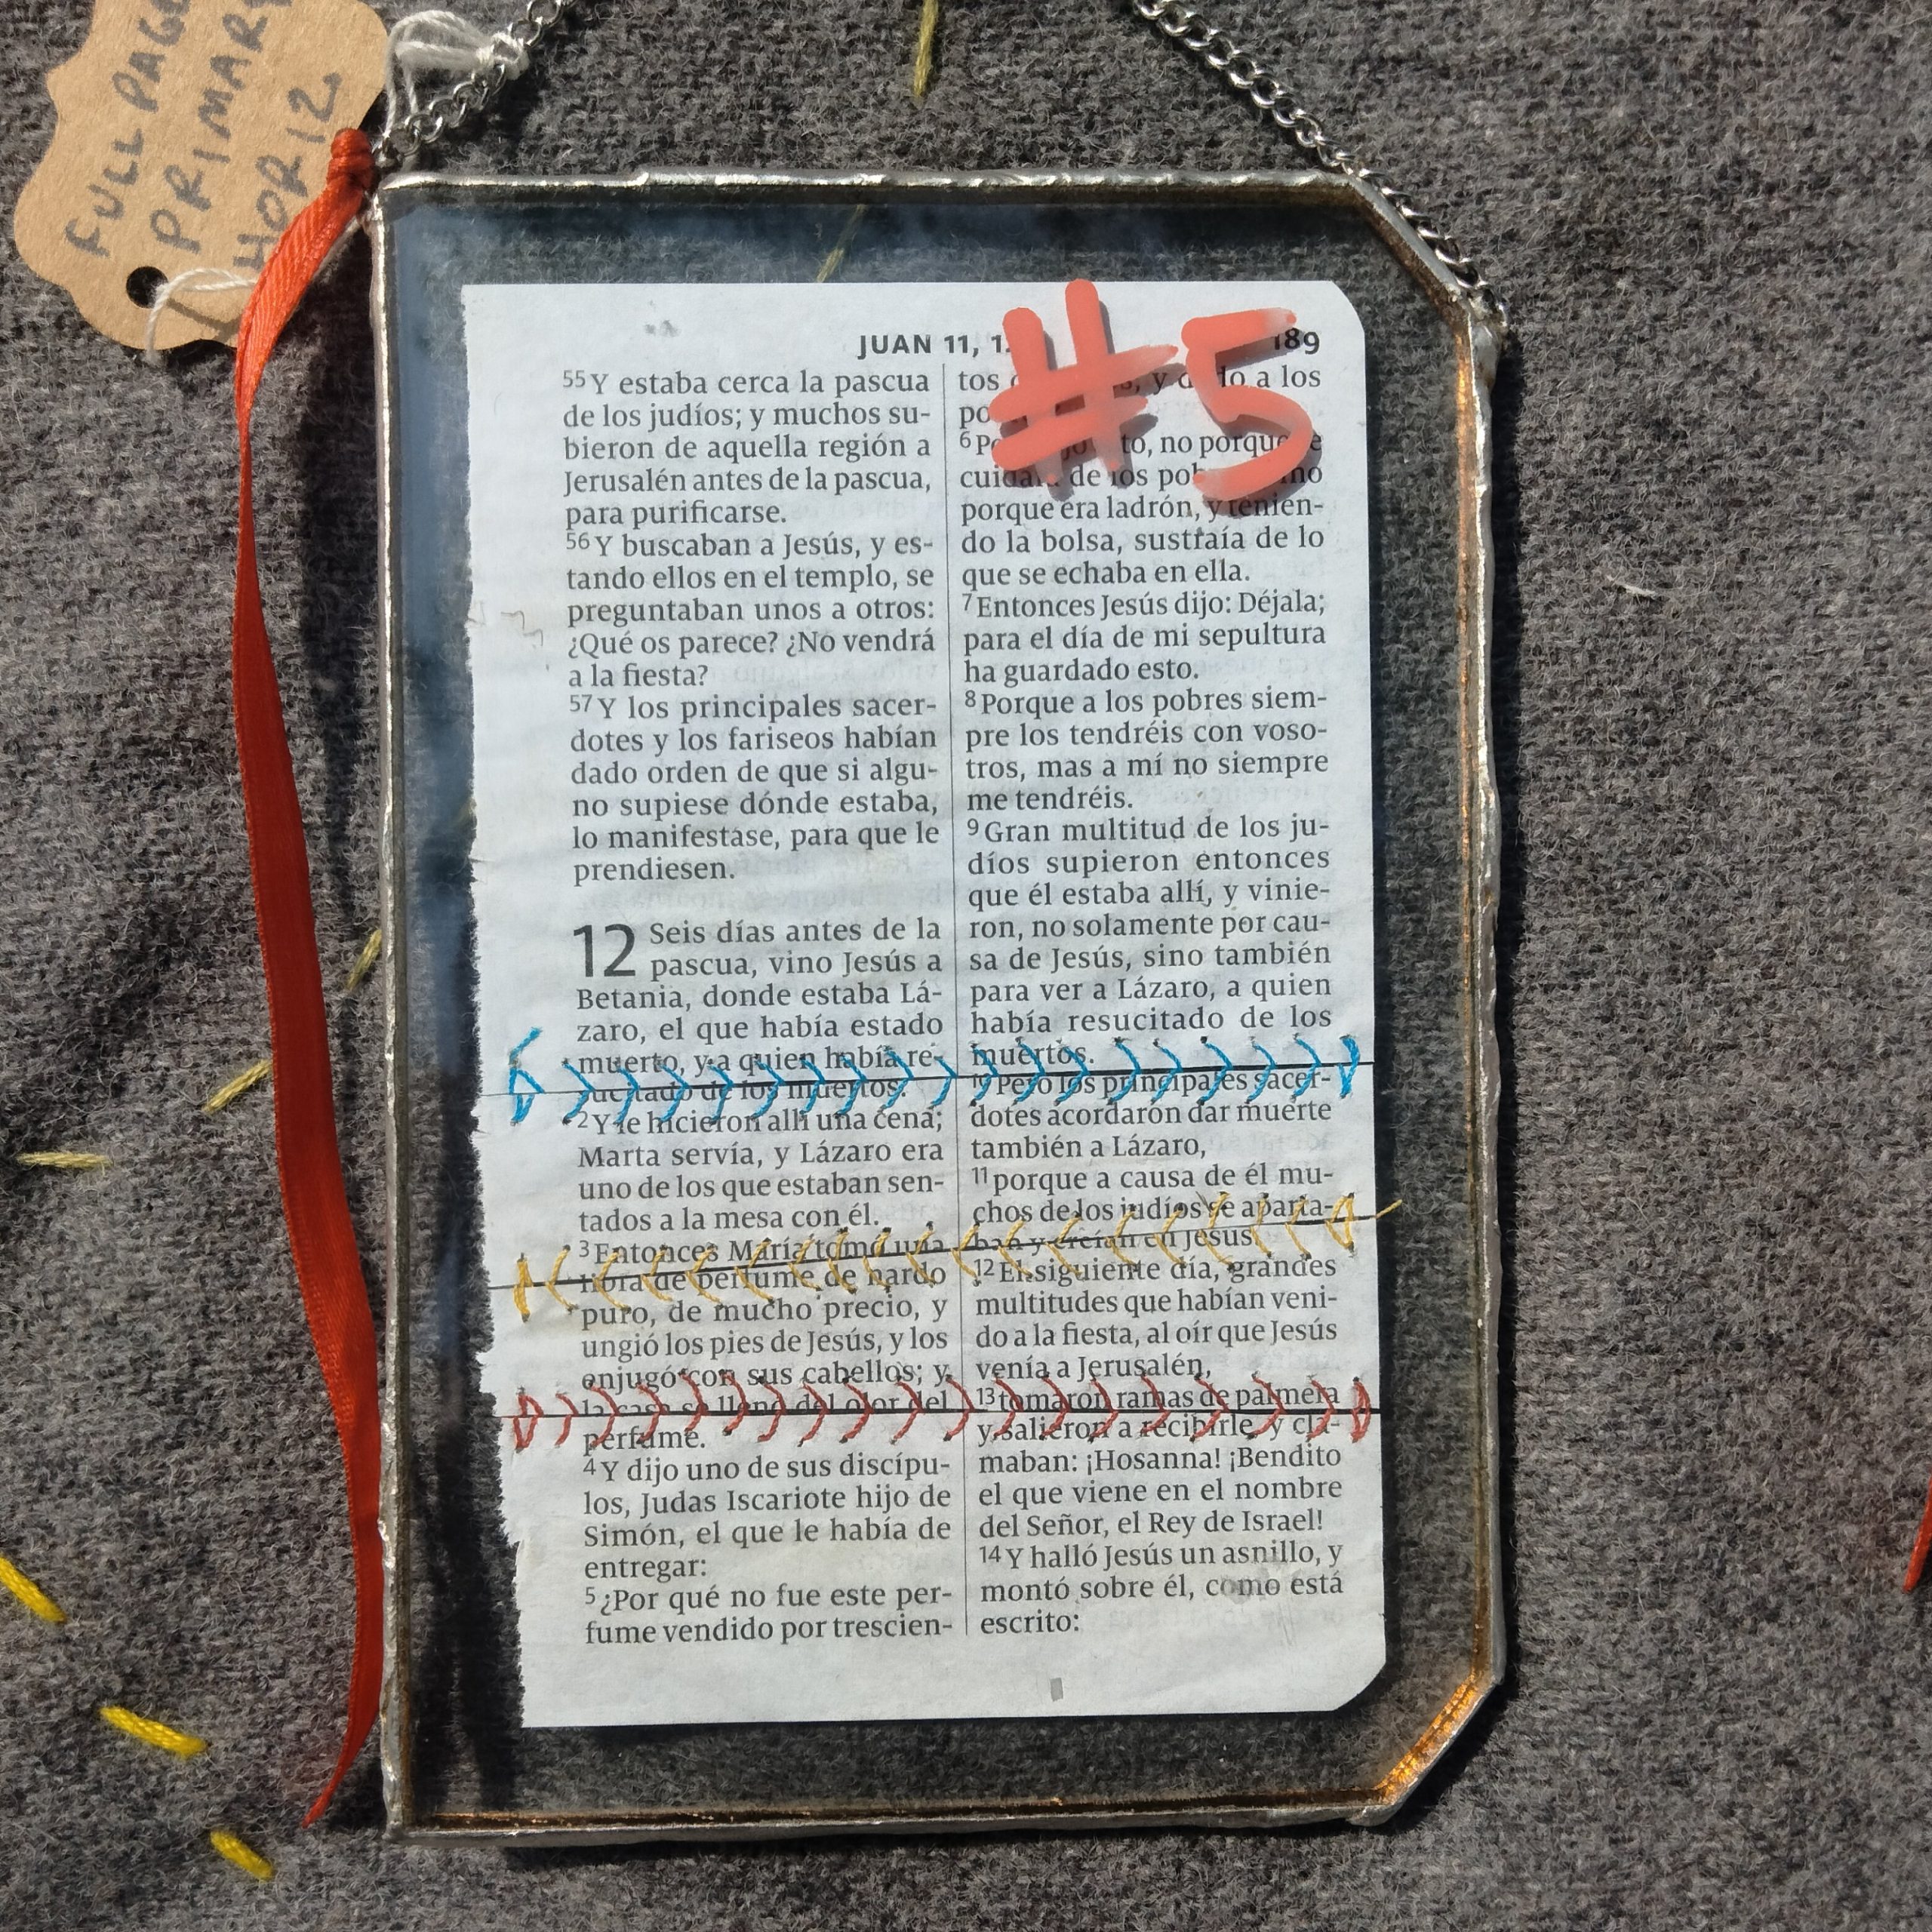 FULL PAGE
PRIMARY
HORIZ
#5
JUAN 11, 189
55 Y estaba cerca la pascua
de los judíos; y muchos su-
bieron de aquella región a
Jerusalén antes de la pascua,
para purificarse.
56 Y buscaban a Jesús, y es-
tando ellos en el templo, se
preguntaban unos a otros:
¿Qué os parece? ¿No vendrá
a la fiesta?
57 Y los principales sacer-
dotes y los fariseos habían
dado orden de que si algu-
no supiese dónde estaba,
lo manifestase, para que le
prendiesen.
12 Seis días antes de la
pascua, vino Jesús a
Betania, donde estaba Lá-
zaro, el que había estado
muerto, y a quien había re-
de los muertos.
2 Y le hicieron allí una cena;
Marta servía, y Lázaro era
uno de los que estaban sen-
tados a la mesa con él.
3 Entonces María tomó una
libra de perfume de nardo
puro, de mucho precio, y
ungió los pies de Jesús, y los
enjugó con sus cabellos; y
la casa se llenó del olor del
perfume.
4 Y dijo uno de sus discípu-
los, Judas Iscariote hijo de
Simón, el que le había de
entregar:
5 ¿Por qué no fue este per-
fume vendido por trescien-
tos y a los
6 no porque
de los
porque era ladrón, y tenien-
do la bolsa, sustraía de lo
que se echaba en ella.
7 Entonces Jesús dijo: Déjala;
para el día de mi sepultura
ha guardado esto.
8 Porque a los pobres siem-
pre los tendréis con voso-
tros, mas a mí no siempre
me tendréis.
9 Gran multitud de los ju-
díos supieron entonces
que él estaba allí, y vinie-
ron, no solamente por cau-
sa de Jesús, sino también
para ver a Lázaro, a quien
había resucitado de los
muertos.
10 Pero los principales sacer-
dotes acordaron dar muerte
también a Lázaro,
11 porque a causa de él mu-
chos de los judíos se aparta-
ban y creían en Jesús.
12 El siguiente día, grandes
multitudes que habían veni-
do a la fiesta, al oír que Jesús
venía a Jerusalén,
13 tomaron ramas de palmera
y salieron a recibirle, y cla-
maban: ¡Hosanna! ¡Bendito
el que viene en el nombre
del Señor, el Rey de Israel!
14 Y halló Jesús un asnillo, y
montó sobre él, como está
escrito: